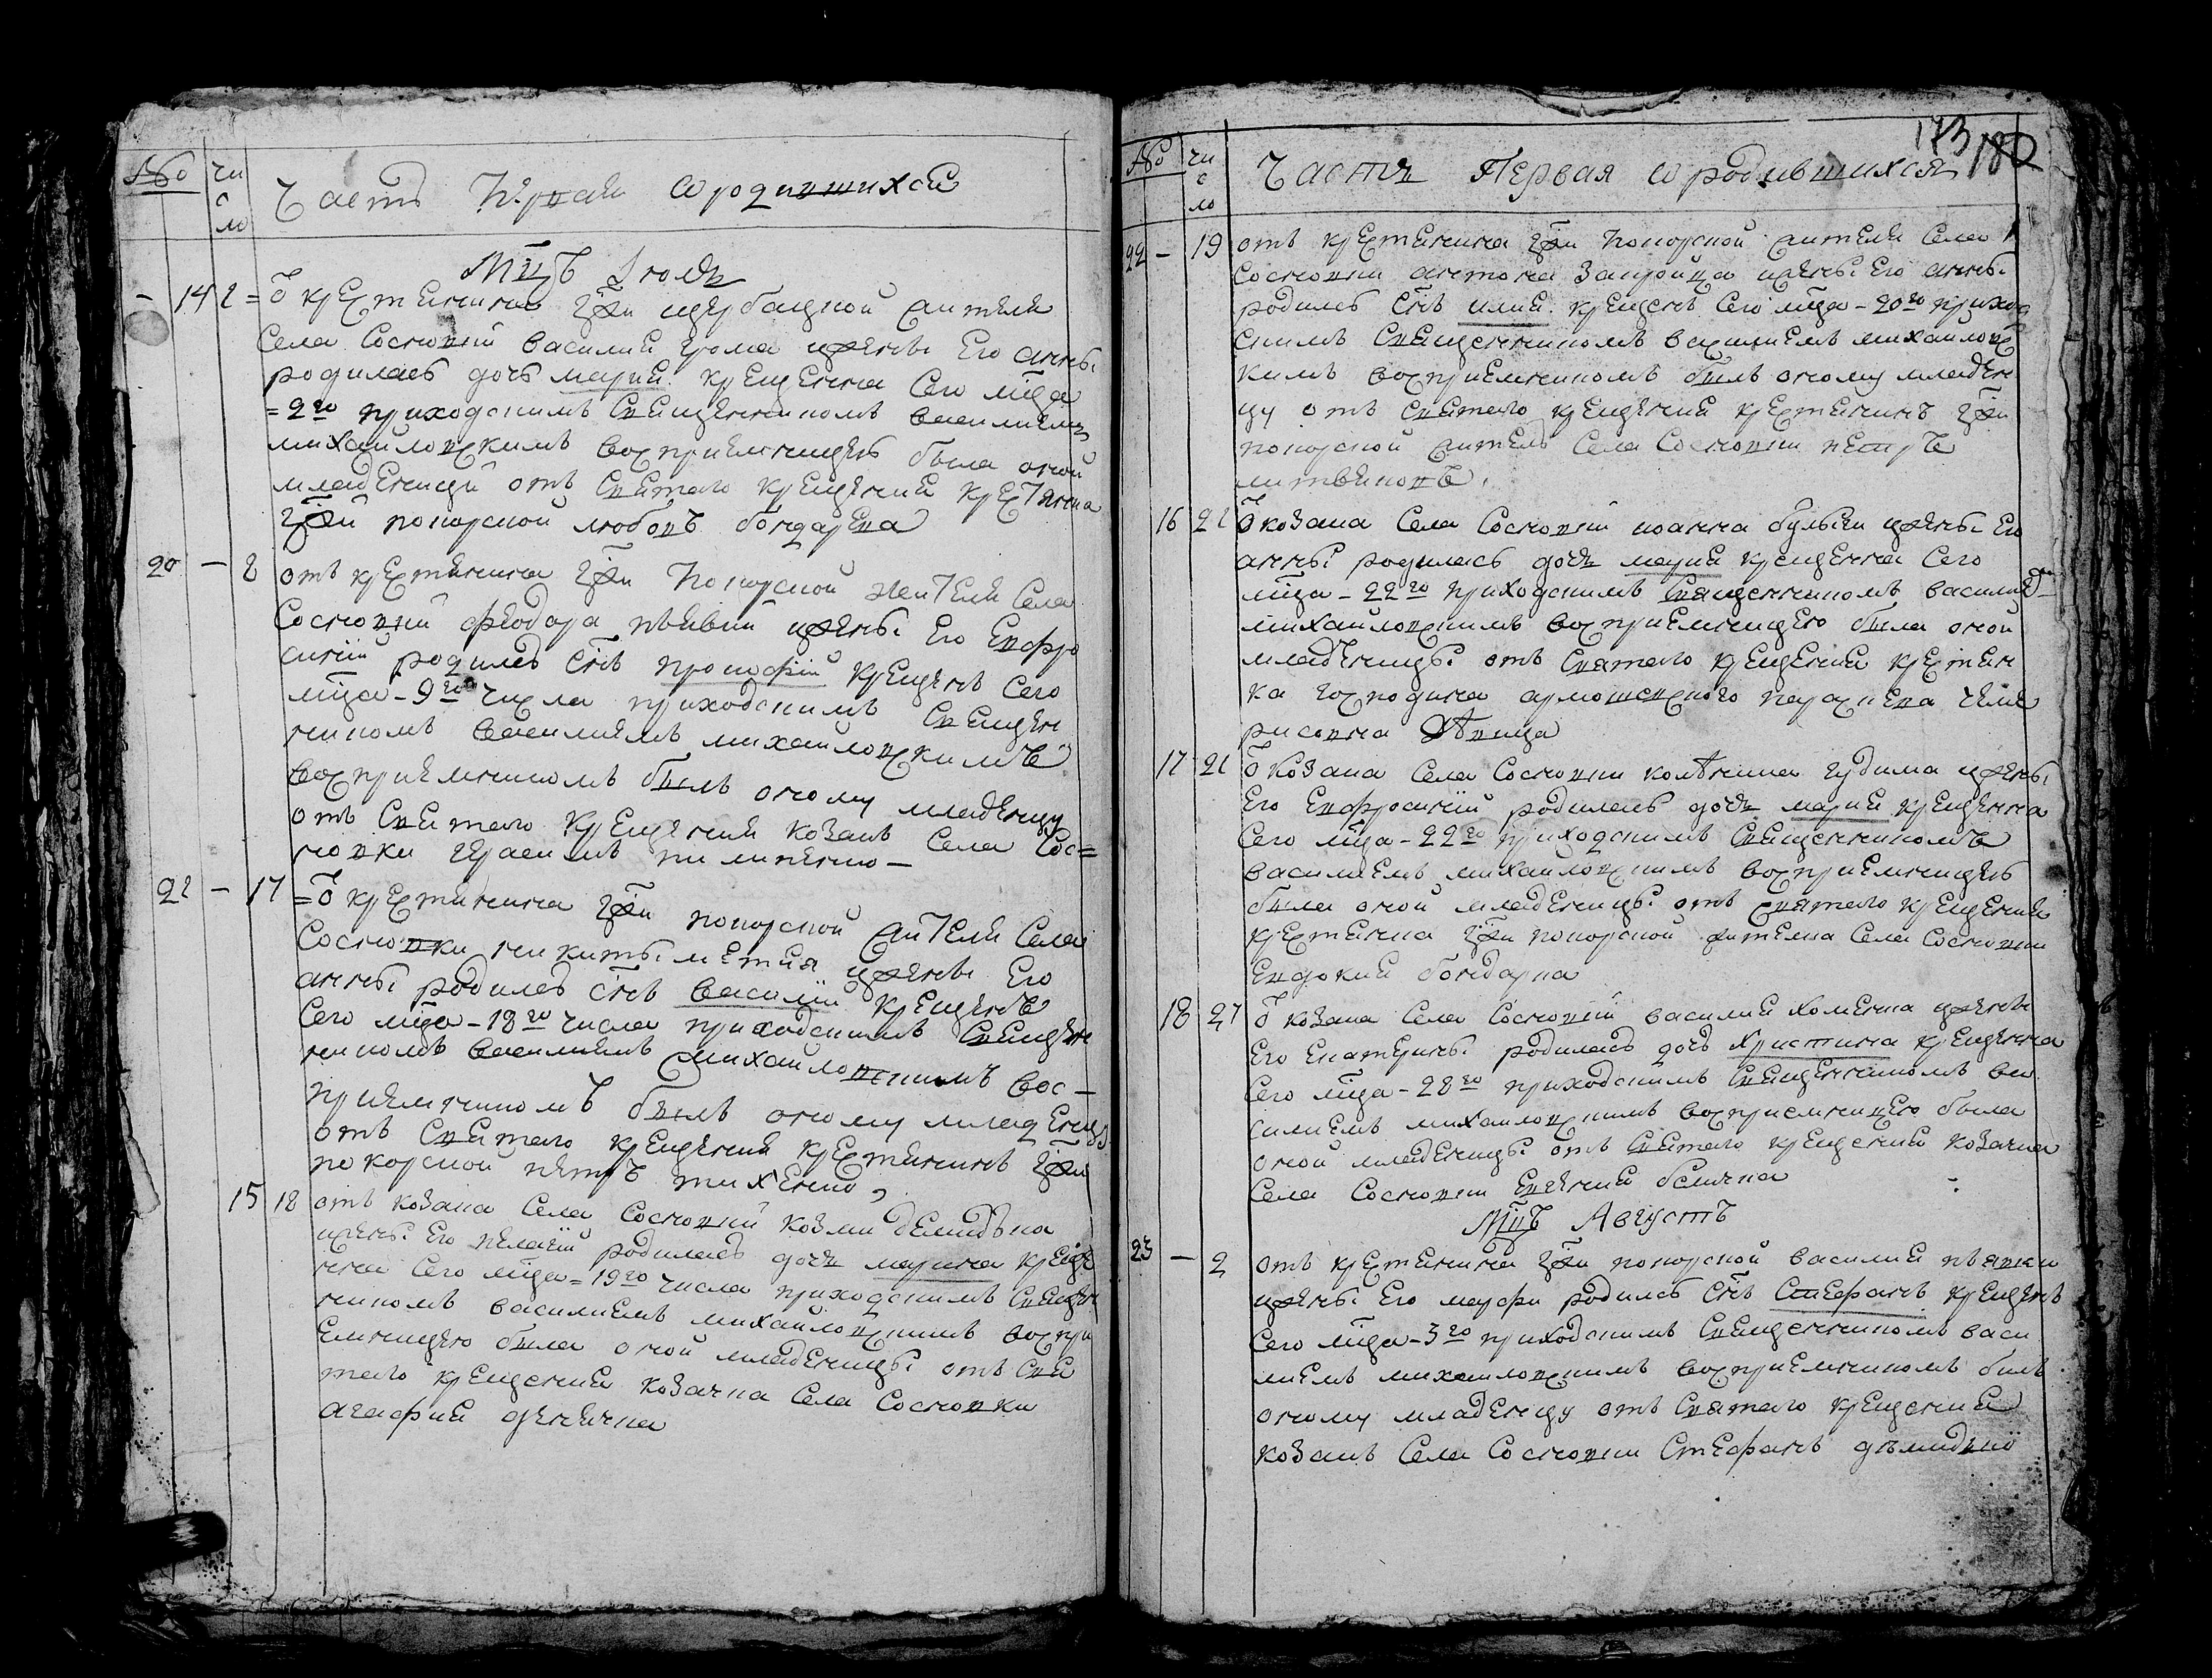 № чи
с
ло
Часть Первая о родившихся
Мцъ Июль
– 14 2 = ѿ крестянина гжи щербацкой жителя
Села Сосновки василия грома ижены Его анны
родилась дочь мария крещенна Сего мца
= 2го приходскимъ Священникомъ василиемъ
михайловскимъ восприемницею была оной
младеницы отъ Святаго крещения крестянка
гжи покорской любовъ бондарева
20 – 8 отъ крестянина гжи Покорской жителя Села
Сосновки феодора ижены Его Евфро
синии родилъся снъ прокофій крещенъ Сего
мца – 9го числа приходскимъ Священ
никомъ василиемъ михайловскимъ
восприемникомъ былъ оному младенцу
отъ Святаго крещения козакъ Села Сос=
новки герасимъ пилипенко –
21 – 17 = ѿ крестянина гжи покорской жителя Села
Сосновки никиты ижены Его
анны родилъ снъ василій крещенъ
Сего мца – 18го числа приходскимъ Священ
никомъ василиемъ михайловскимъ вос –
приемникомъ былъ оному младенцу
отъ Святаго крещения крестянинъ гжи
покорской петръ тихенко
15 18 отъ козака Села Сосновки козми демидѣка
ижены Его пелагіи родилась дочь марина креще
нна Сего мца = 19го числа приходскимъ Священ
никомъ василиемъ михайловскимъ воспри
емницею была оной младеницы отъ Свя
таго крещения козачка Села Сосновки
агафия
173 180
№ чи
с
ло
Часть Первая о родившихся
22 – 19 отъ крестянина гжи Покорской жителя Села
Сосновки антона ижены Его анны
родилъ снъ илия крещенъ Сего мца – 20го приход
скимъ Священникомъ василиемъ михайловс
кимъ восприемникомъ былъ оному младен
цу отъ Святаго крещения крестянинъ гжи
покорской житель Села Сосновки петръ
литвиновъ.
16 21 ѿ козака Села Сосновки иоанна ижены Его
анны родилась дочь мария крещенна Сего
мца – 22го приходскимъ Священникомъ василиемъ
михайловскимъ восприемницею была оной
младеницы отъ Святаго крещения крестян
ка господина
17 21 ѿ Козака Села Сосновки гудима ижены
Его Евфросинии родилась дочь мария крещенна
Сего мца – 22го приходскимъ Священникомъ
василиемъ михайловскимъ восприемницею
была оной младеницы отъ святаго крещения
крестянка гжи покорской жителка Села Сосновки
Евдокия бондарка
18 27 ѿ козака Села Сосновки василия хоменка ижены
Его Екатерины родилась дочь христина крещенна
Сего мца – 28го приходскимъ Священникомъ ва
силиемъ михайловскимъ восприемницею была
оной младеницы отъ Святаго крещения козачка
Села Сосновки Евгения
Мцъ Августъ
23 – 2 отъ крестянина гжи покорской василия
ижены Его марфи родилъ снъ Стефанъ крещенъ
Сего мца – 3го приходскимъ Священникомъ васи
лиемъ михайловскимъ восприемникомъ былъ
оному младенцу отъ Святаго крещения
козакъ Села Сосновки Стефанъ